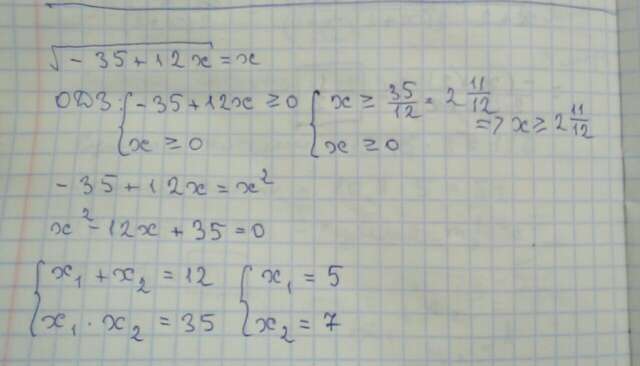 √(-35+12x) = x
ОДЗ: { -35+12x ≥ 0 { x ≥ 35/12 = 2 11/12
x ≥ 0 x ≥ 0 => x ≥ 2 11/12
-35+12x = x²
x² - 12x + 35 = 0
{ x₁ + x₂ = 12 { x₁ = 5
x₁ · x₂ = 35 x₂ = 7